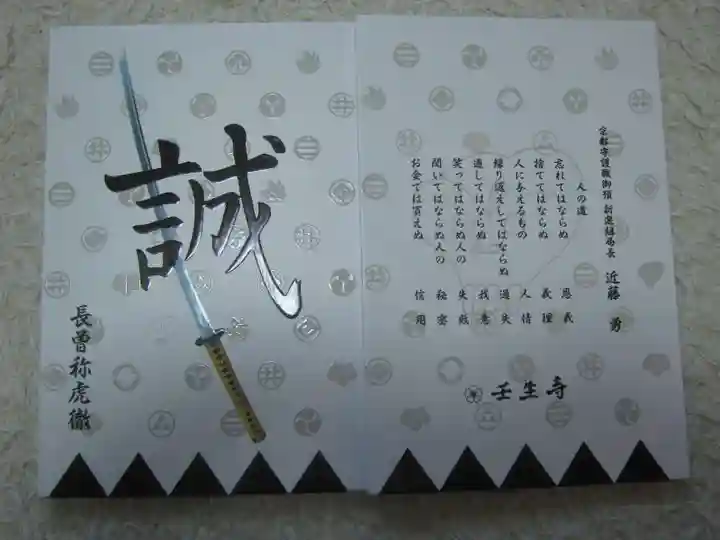 誠
長曽称虎徹
京都守護職御預 新選組局長 近藤 勇
人の道
忘れてはならぬ 恩義
捨ててはならぬ 義理
人に与えるもの 人情
繰り返えしてはならぬ 過失
通してはならぬ 我意
笑ってはならぬ人の 失敗
聞いてはならぬ人の 秘密
お金では買えぬ 信用
壬生寺